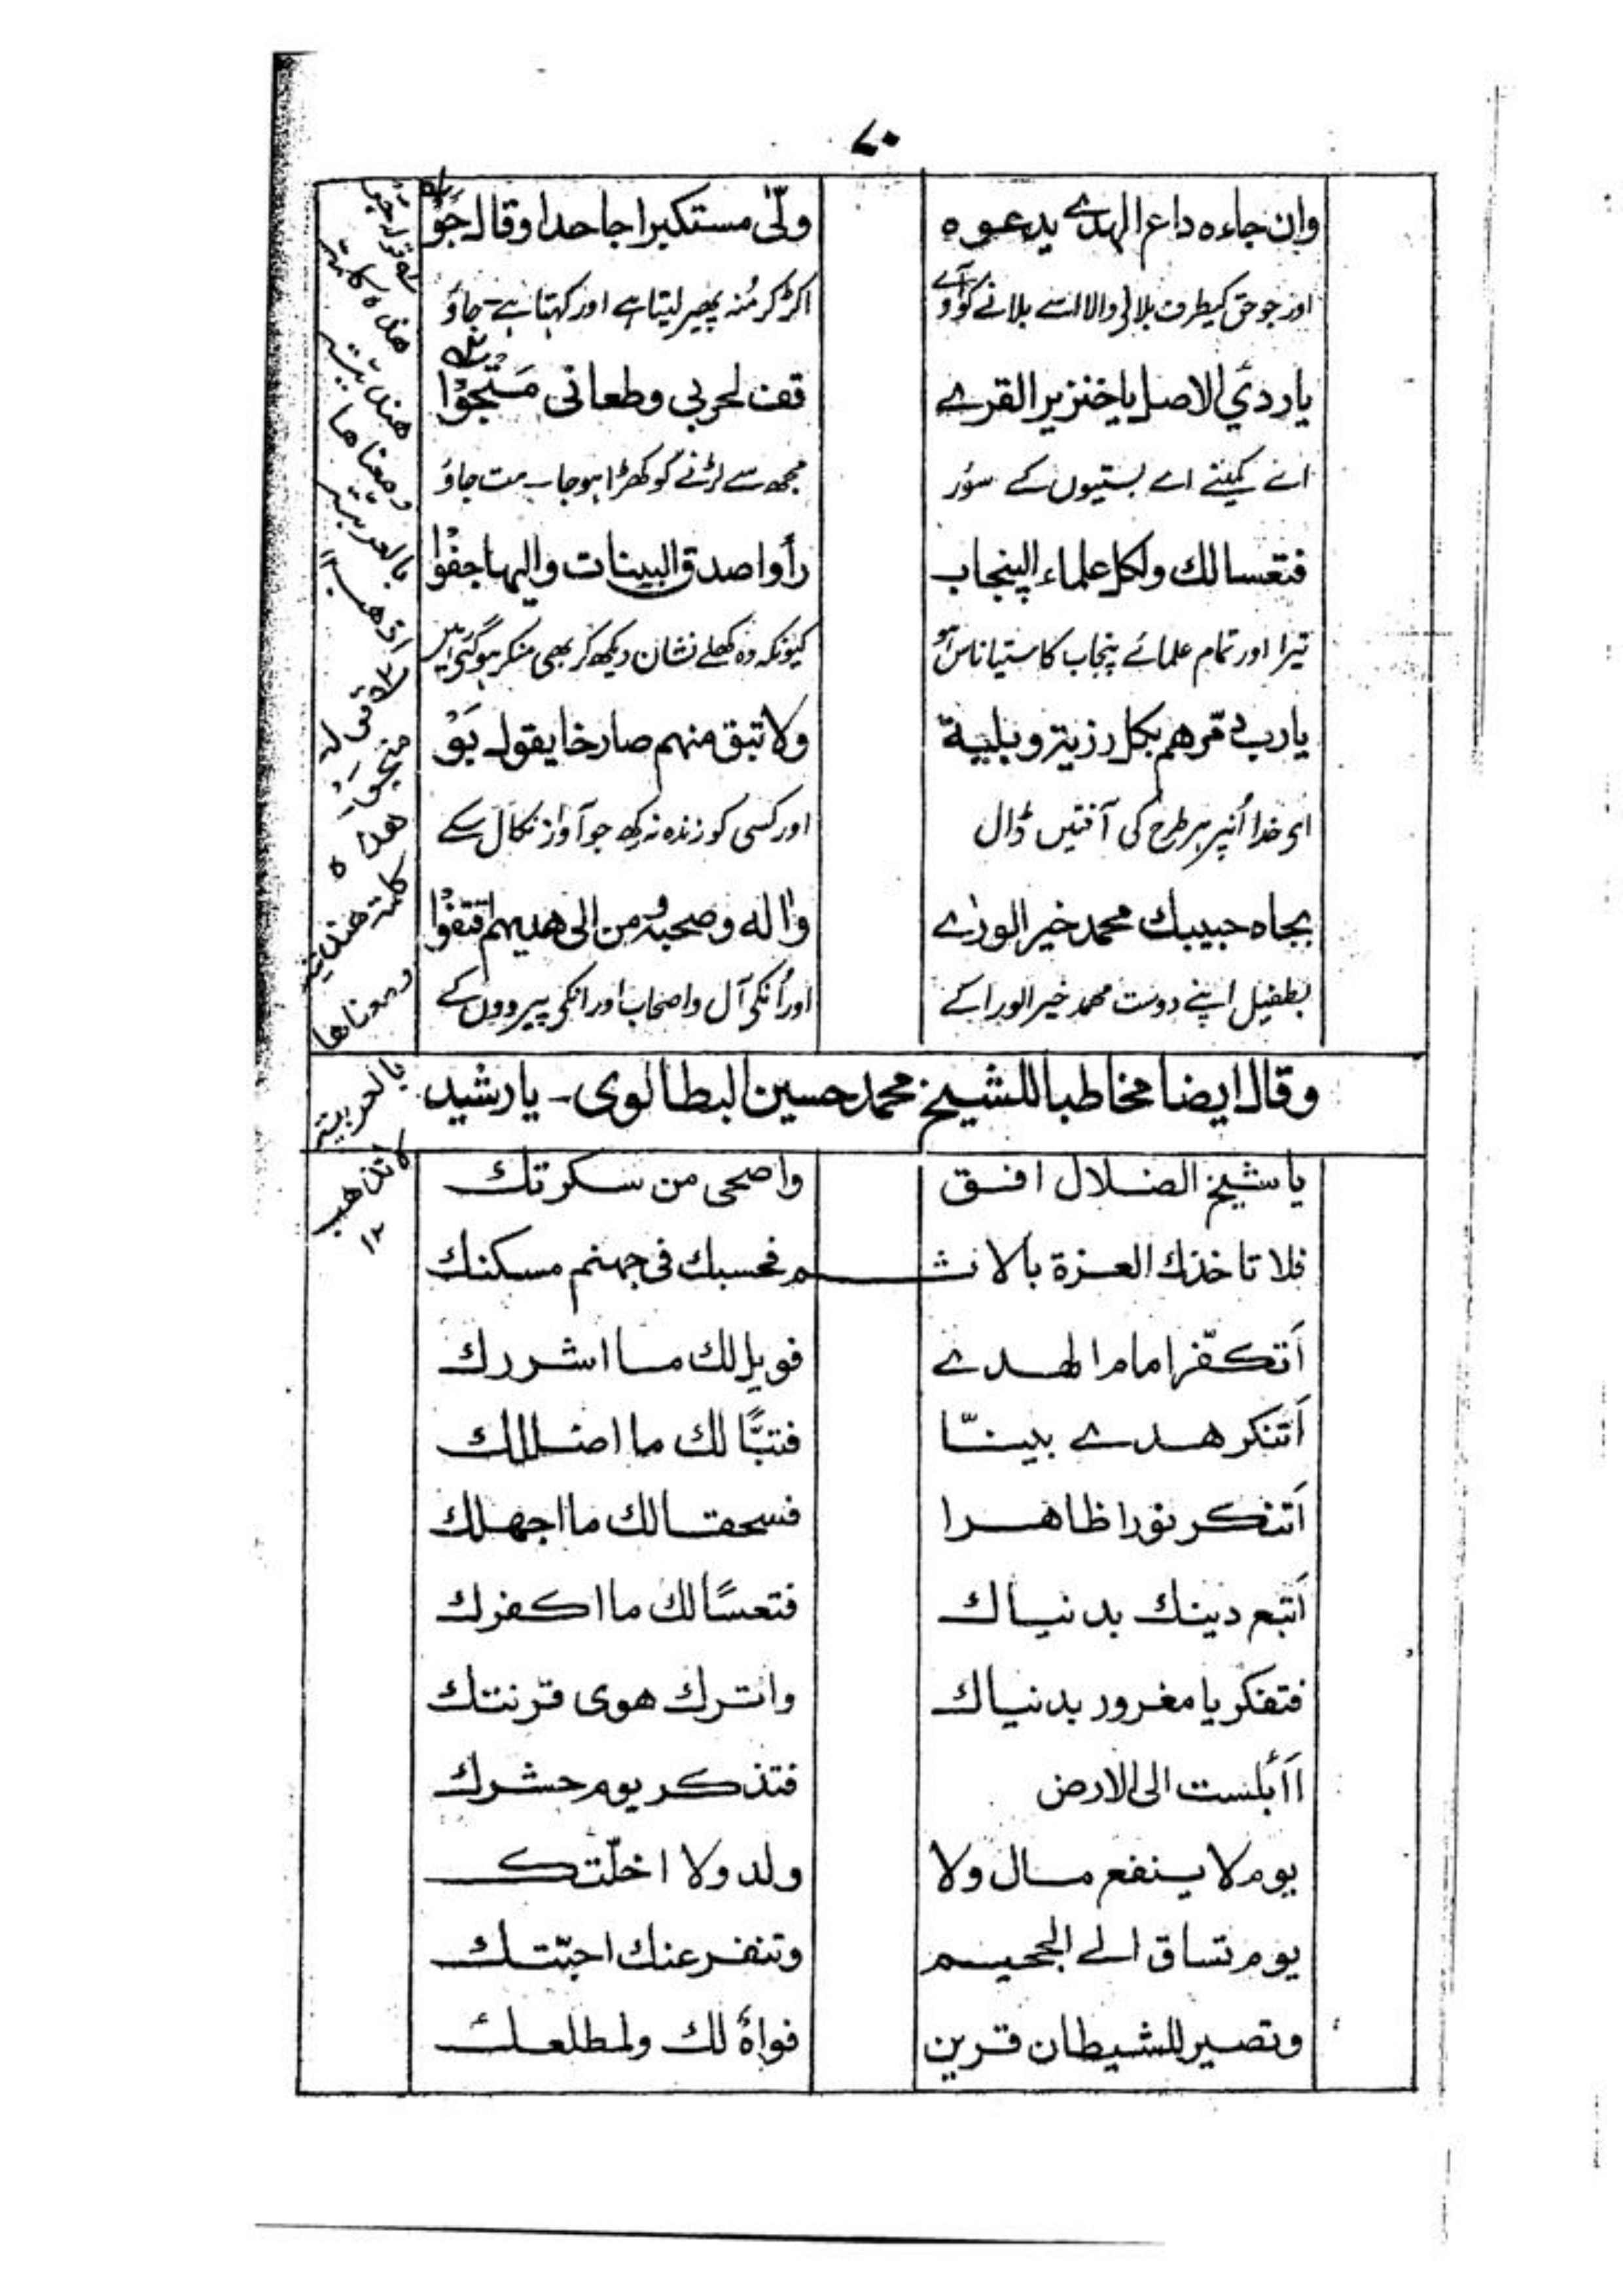 ۷۰
وان جاءه داع الهدے يدعوه ولّى مستكبرا جاحدا وقال جَوْ
اور جو حق کیطرف بلانے والا اسے بلانے کو آوے اکڑ کر مُنہ پھیر لیتا ہے اور کہتا ہے۔ جاؤ
يا رديّ الاصل يا خنزير القرے قف لحربي وطعانى مَتْجَوْا
اے کمینے اے بستیوں کے سؤر مجھ سے لڑنے کو کھڑا ہو جا۔ مت جاؤ
فتعسا لك ولكل علماء البنجاب رأوا صدق البينات واليها جفوْا
تیرا اور تمام علمائے پنجاب کا ستیاناس ہو کیونکہ وہ کھلے نشان دیکھ کر بھی منکر ہو گئے ہیں
يا رب دمّرهم بكل رزية وبلية ولا تبق منهم صارخا يقول بَوْ
اے خدا اُنپر ہر طرح کی آفتیں ڈال اور کسی کو زندہ نہ رکھ جو آواز نکال سکے
بجاه حبيبك محمد خير الورٰے واٰله وصحبه ومن الى هديهم اقتفوْا
بطفیل اپنے دوست محمد خیر الورا کے اور اُنکی آل واصحاب اور انکی پیرووں کے
وقال ايضا مخاطبا للشيخ محمد حسين البطالوى - يا رشيد
يا شيخ الضلال افق واصحى من سكرتك
فلا تاخذك العزة بالاثم فحسبك فى جهنم مسكنك
اَتكفّر امام الهدے فويل لك ما اشررك
اَتنكر هدے بينّا فتبًّا لك ما اضللك
اَتنكر نورا ظاهرا فسحقا لك ما اجهلك
اَتبع دينك بدنياك فتعسًا لك ما اكفرك
فتفكر يا مغرور بدنياك واترك هوى قرنتك
اَأبلست الى الارض فتذكر يوم حشرك
يوم لا ينفع مال ولا ولد ولا اخلّتك
يوم تساق الے الجحيم وتنفر عنك احبّتك
وتصير للشيطان قرين فواهٌ لك ولمطلعك
قوله جَوْ
هذه كلمة
هندية
ومعناها
بالعربية
اذهب ۱۲
قوله
متجَوْا
هذه
كلمة هندية
ومعناها
بالعربية
لا تذهب
۱۲